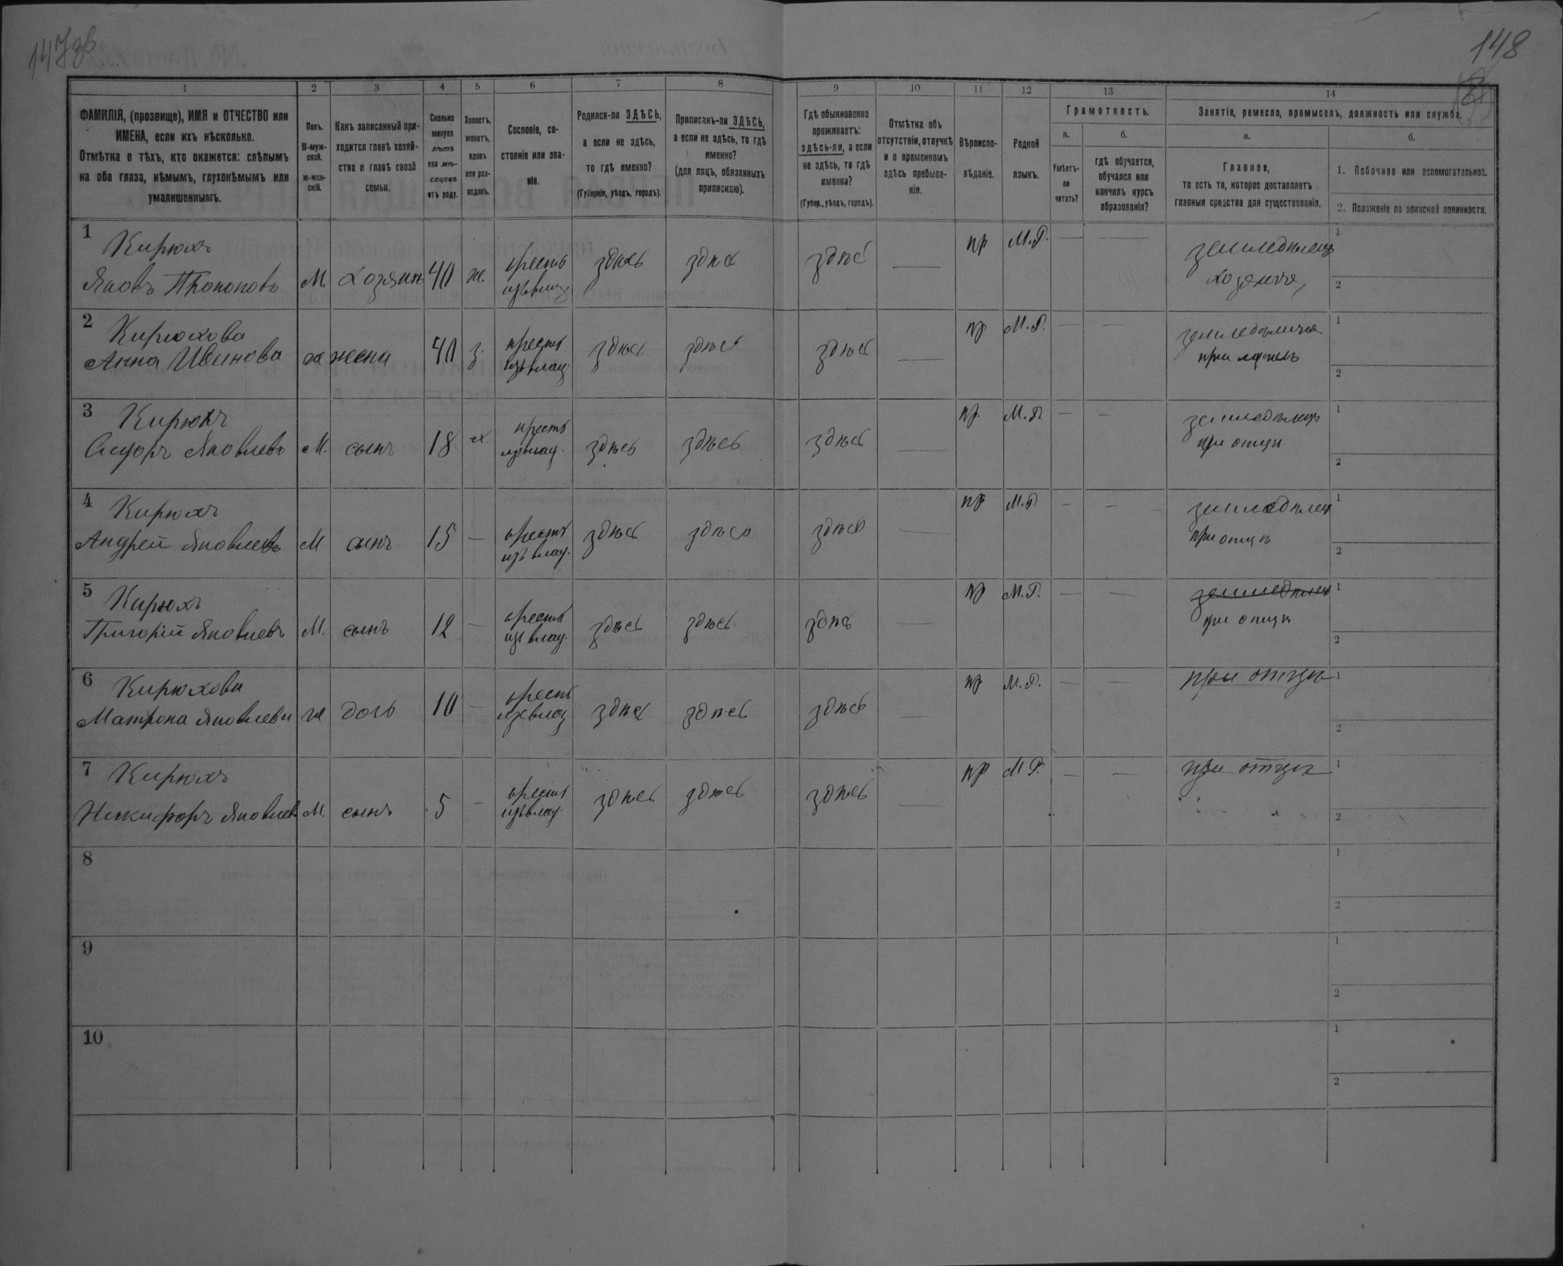 147об
148
1 2 3 4 5 6 7 8 9 10 11 12 13 14
ФАМИЛІЯ, (прозвище), ИМЯ и ОТЧЕСТВО или
ИМЕНА, если ихъ нѣсколько.
Отмѣтка о тѣхъ, кто окажется: слѣпымъ
на оба глаза, нѣмымъ, глухонѣмымъ или
умалишеннымъ.
Полъ.
М-муж-
ской.
ж-жен-
скій.
Какъ записанный при-
ходится главѣ хозяй-
ства и главѣ своей
семьи.
Сколько
минуло
лѣтъ
или мѣ-
сяцевъ
отъ роду.
Холостъ,
женатъ,
вдовъ
или раз-
веденъ.
Сословіе, со-
стояніе или зва-
ніе.
Родился-ли ЗДѢСЬ,
а если не здѣсь,
то гдѣ именно?
(Губернія, уѣздъ, городъ).
Приписанъ-ли ЗДѢСЬ,
а если не здѣсь, то гдѣ
именно?
(для лицъ, обязанныхъ
припискою).
Гдѣ обыкновенно
проживаетъ:
здѣсь-ли, а если
не здѣсь, то гдѣ
именно?
(Губер., уѣздъ, городъ).
Отмѣтка объ
отсутствіи, отлучкѣ
и о временномъ
здѣсь пребыва-
ніи.
Вѣроиспо-
вѣданіе.
Родной
языкъ.
Грамотность.
а.
Умѣетъ-
ли
читать?
б.
гдѣ обучается,
обучался или
кончилъ курсъ
образованія?
Занятіе, ремесло, промыселъ, должность или служба.
а.
Главное,
то есть то, которое доставляетъ
главныя средства для существованія.
б.
1. Побочное или вспомогательное.
2. Положеніе по воинской повинности.
1 Кирюхъ
Яковъ Прокоповъ М. хозяинъ 40 ж. крестъ
изъ влад. здѣсь здѣсь здѣсь — пр М.Р. — — земледѣлецъ
хозяинъ
1
2
2 Кирюхова
Анна Иванова ж жена 40 з. крестъ
изъ влад. здѣсь здѣсь здѣсь — пр М.Р. — — земледѣлица
при мужѣ
1
2
3 Кирюхъ
Сидоръ Яковлевъ М. сынъ 18 х крестъ
изъ влад. здѣсь здѣсь здѣсь — пр. М.Р. — — земледѣлецъ
при отцѣ
1
2
4 Кирюхъ
Андрей Яковлевъ М сынъ 15 — крестъ
изъ влад. здѣсь здѣсь здѣсь — пр М.Р. — — земледѣлецъ
при отцѣ
1
2
5 Кирюхъ
Григорій Яковлевъ М. сынъ 12 — крестъ
изъ влад. здѣсь здѣсь здѣсь — пр М.Р. — — земледѣлецъ
при отцѣ
1
2
6 Кирюхова
Матрона Яковлева ж дочь 10 — крестъ
изъ влад здѣсь здѣсь здѣсь — пр М.Р. — — при отцѣ
1
2
7 Кирюхъ
Никифоръ Яковлевъ М. сынъ 5 — крестъ
изъ влад. здѣсь здѣсь здѣсь — пр М Р. — — при отцѣ
1
2
8
1
2
9
1
2
10
1
2